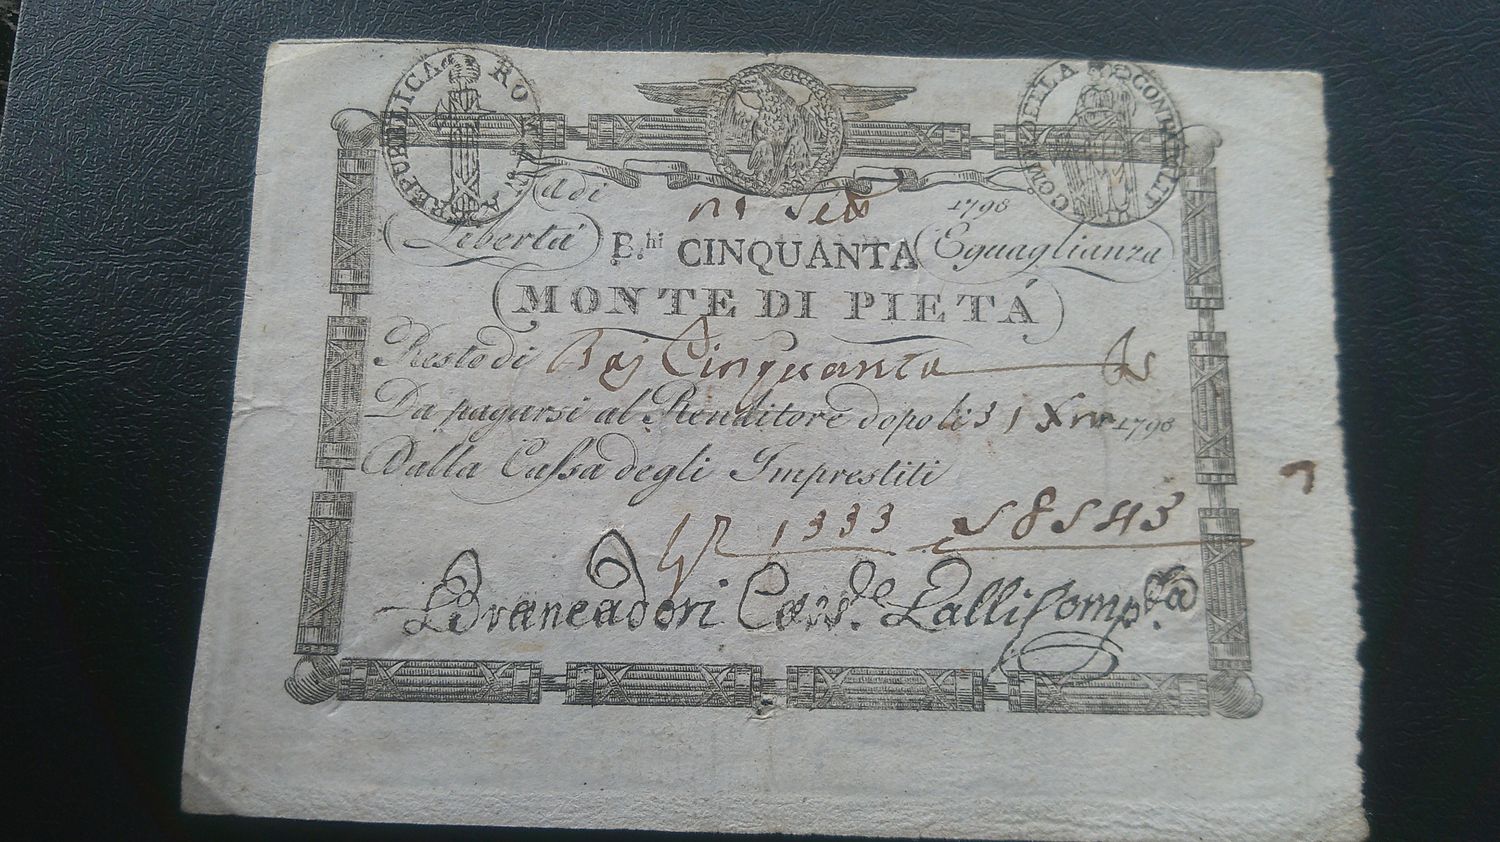 REPUBLICA ROMANA
COM. DELLA CONTABILITA
Adi 1798
Libertá B.hi CINQUANTA Eguaglianza
MONTE DI PIETÁ
Resto di Baj Cinquanta
Da pagarsi al Renditore dopo li 31 Xm 1798
Dalla Cassa degli Imprestiti
1333 58543
Brancadori Lalli Comp.ta